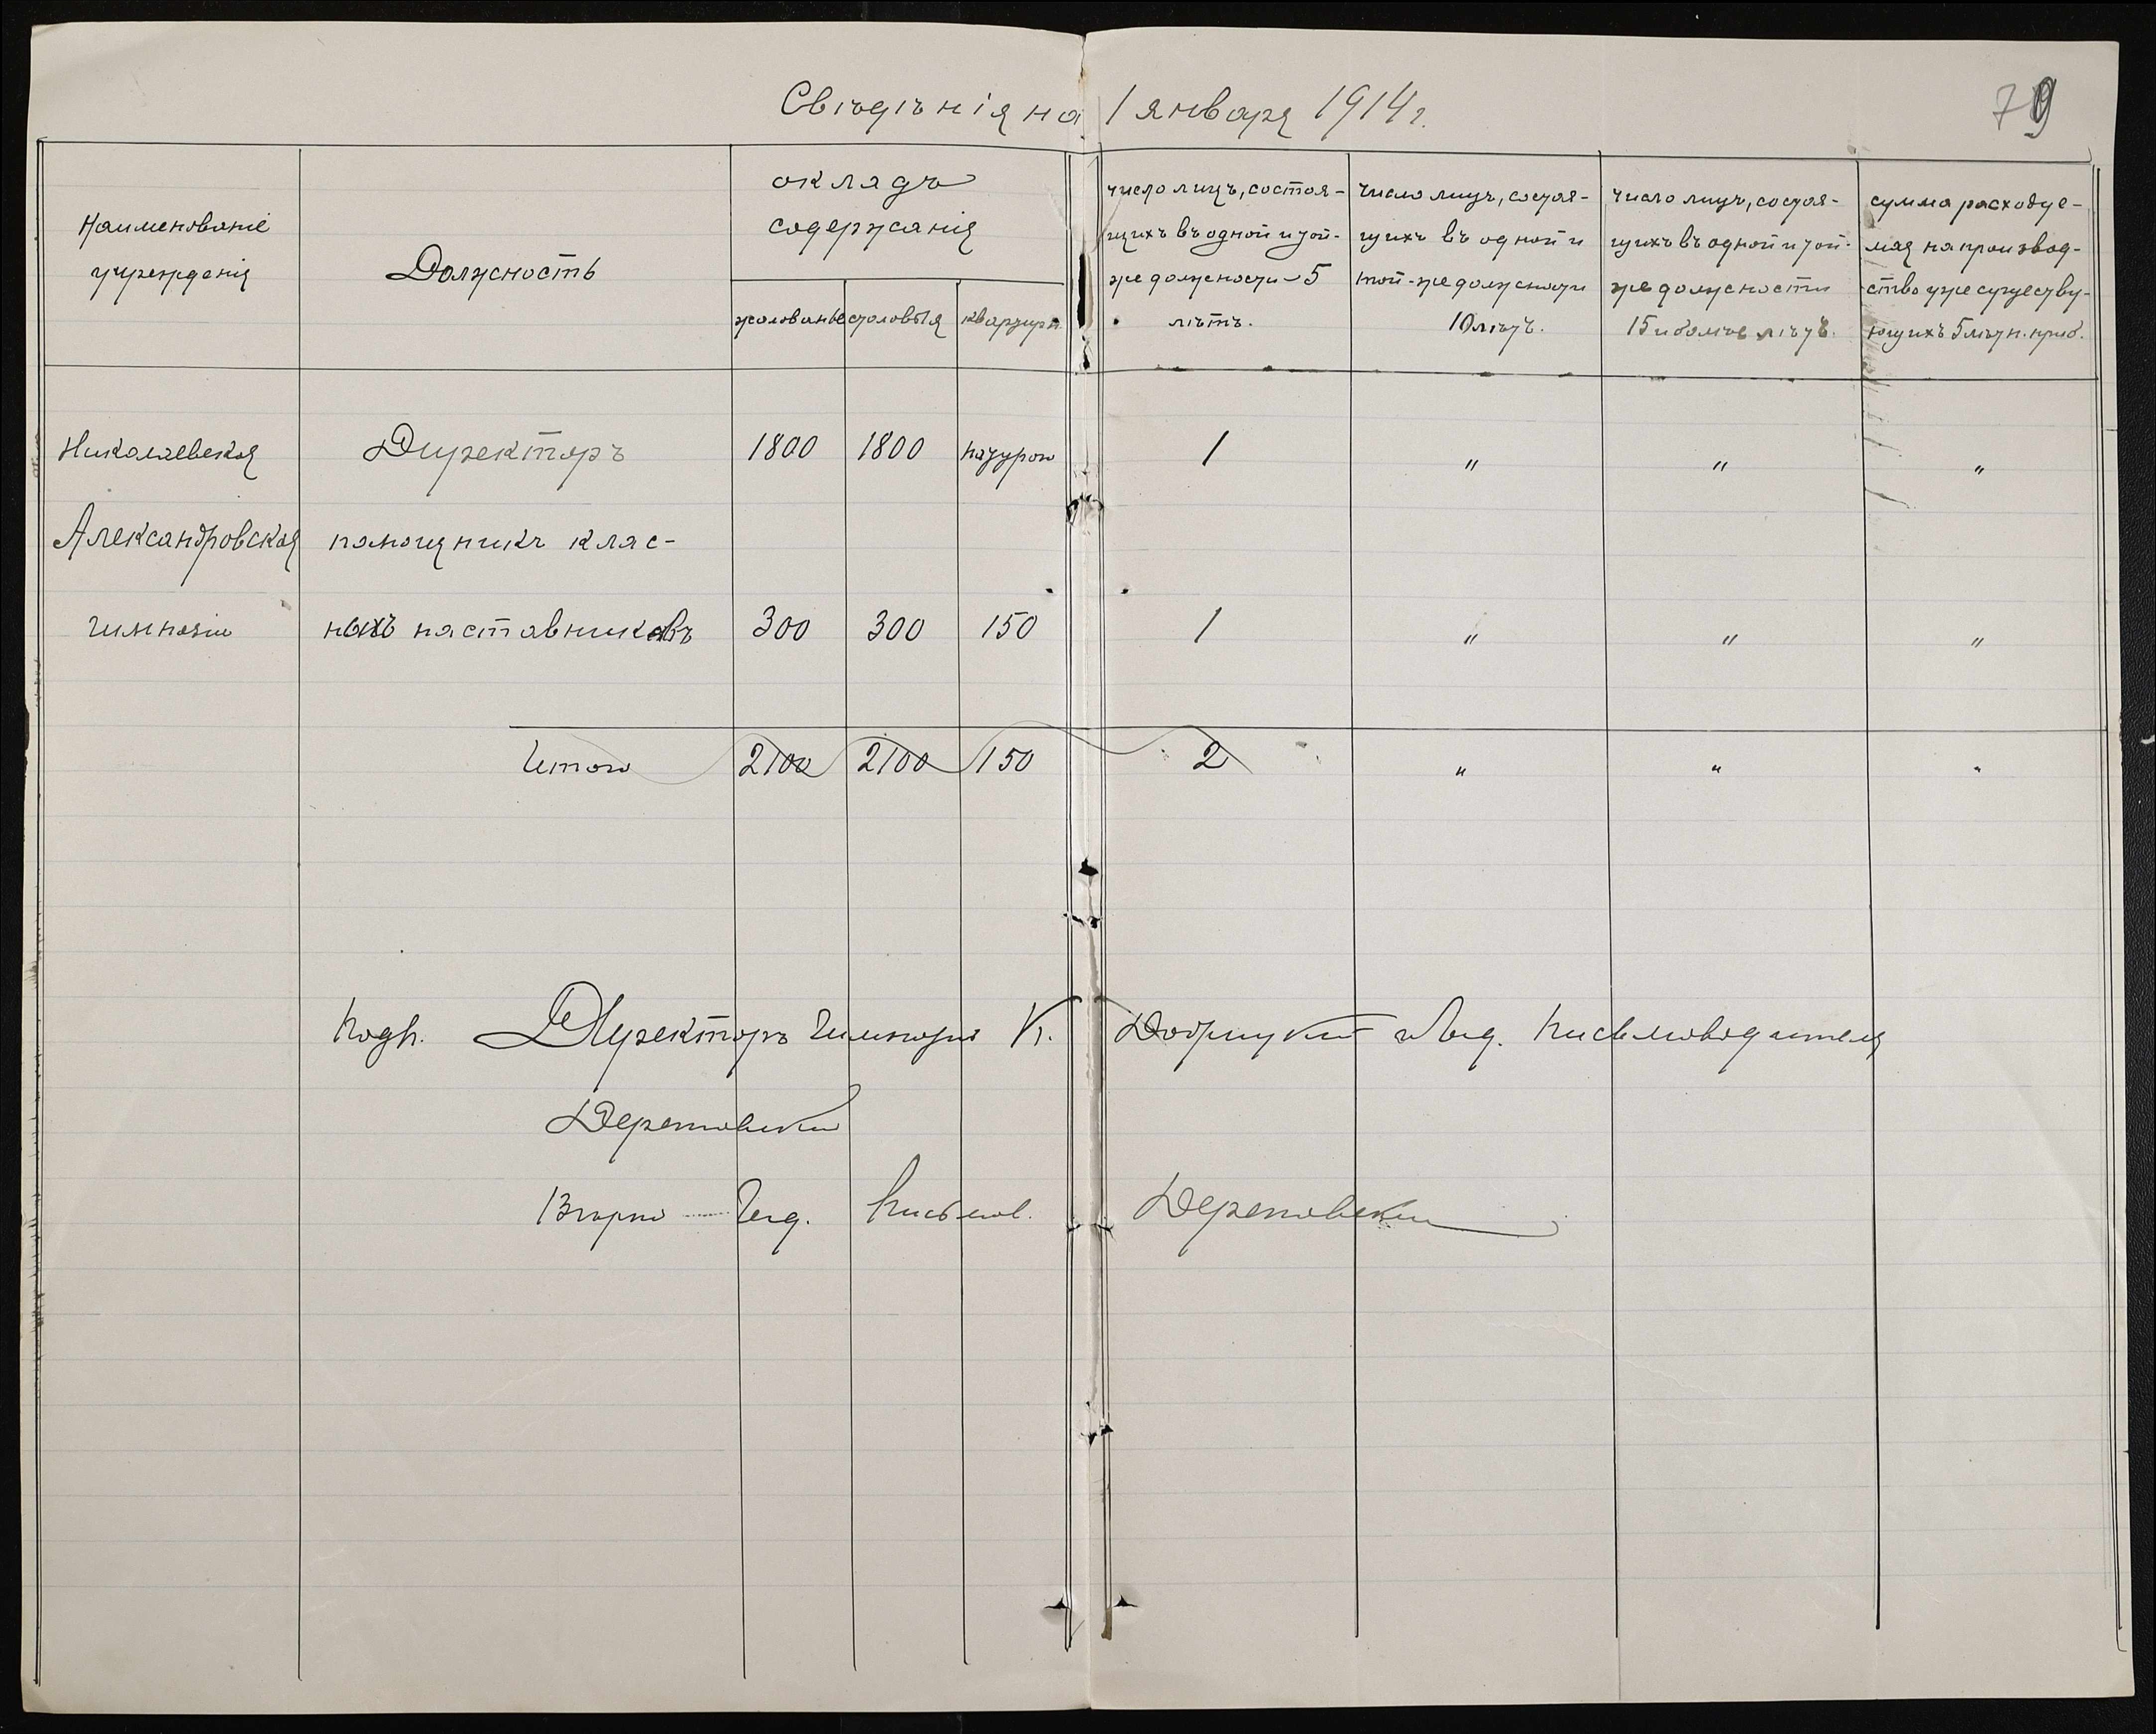 Свѣдѣнія на 1 января 1914 г.
79
Наименованіе
учрежденія
Должность
окладъ
содержанія
жалованье столовыя квартирн.
число лицъ, состоя-
щихъ въ одной и той-
же должности 5
лѣтъ.
Число лицъ, состоя-
щихъ въ одной и
той-же должности
10 лѣтъ.
Число лицъ, состоя-
щихъ въ одной и той-
же должности
15 и болѣе лѣтъ.
сумма расходуе-
мая на производ-
ство уже существу-
ющихъ 5 лѣтн. приб.
Николаевская Директоръ 1800 1800 натурою 1 " " "
Александровская помощникъ клас-
гимназія ныхъ наставниковъ 300 300 150 1 " " "
Итого 2100 2100 150 2 " " "
Подп. Директоръ Гимназіи К. Добрицкій Письмоводителя
Вѣрно Письмов.